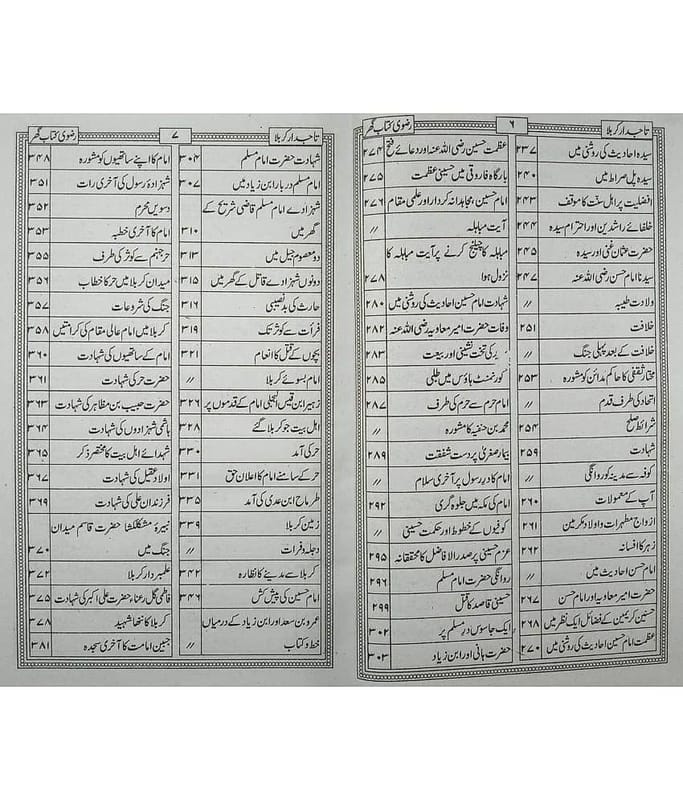 تاجدار کربلا ۶ رضوی کتاب گھر
سیدہ احادیث کی روشنی میں ۲۳۷
سیدہ پل صراط میں ۲۴۰
افضلیت پر اہل سنّت کا موقف ۲۴۳
خلفائے راشدین اور احترام سیدہ ۲۴۴
حضرت عثمان غنی اور سیدہ ۲۴۵
سیدنا امام حسن رضی اللہ عنہ ۲۴۷
ولادت طیبہ //
خلافت ۲۵۱
خلافت کے بعد پہلی جنگ //
مختار ثقفی کا حاکم مدائن کو مشورہ ۲۵۳
اتحاد کی طرف قدم //
شرائط صلح ۲۵۴
شہادت ۲۵۹
کوفہ سے مدینہ کو روانگی //
آپ کے معمولات ۲۶۰
ازواج مطہرات و اولاد مکرمین ۲۶۱
زہر کا افسانہ ۲۶۲
امام حسن احادیث میں //
حضرت امیر معاویہ اور امام حسن ۲۶۷
حسنین کریمین کے فضائل ایک نظر میں ۲۶۸
عظمت امام حسین احادیث کی روشنی میں ۲۷۰
عظمت حسین رضی اللہ عنہ اور دعائے فتح ۲۷۴
بارگاہ فاروقی میں حسینی عظمت ۲۷۵
امام حسین، مجاہدانہ کردار اور علمی مقام ۲۷۶
آیت مباہلہ //
مباہلہ کا چیلنج کرنے پر آیت مباہلہ کا
نزول ہوا ۲۷۸
شہادت امام حسین احادیث کی روشنی میں ۲۸۰
وفات حضرت امیر معاویہ رضی اللہ عنہ ۲۸۲
یزید کی تخت نشینی اور بیعت ۲۸۳
گورنمنٹ ہاؤس میں طلبی ۲۸۵
امام حرم سے حرم کی طرف ۲۸۷
محمد بن حنفیہ کا مشورہ //
بیمار صغریٰ پر دست شفقت ۲۸۹
امام کا در رسول پر آخری سلام //
امام کی مکہ میں جلوہ گری ۲۹۲
کوفیوں کے خطوط اور حکمت حسینی //
عزم حسینی پر صدر الافاضل کا محققانہ ۲۹۵
روانگی حضرت امام مسلم ۲۹۶
حسینی قاصد کا قتل ۲۹۹
ایک جاسوس در مسلم پر ۳۰۲
حضرت ہانی اور ابن زیاد ۳۰۳
تاجدار کربلا ۷ رضوی کتاب گھر
شہادت حضرت امام مسلم ۳۰۴
امام مسلم دربار ابن زیاد میں ۳۰۷
شہزادے امام مسلم قاضی شریح کے
گھر میں ۳۱۰
دو معصوم جیل میں ۳۱۳
دونوں شہزادے قاتل کے گھر میں ۳۱۵
حارث کی بدنصیبی ۳۱۶
فرأت سے کوثر تک ۳۱۹
بچوں کے قتل کا انعام ۳۲۱
امام بسوئے کربلا //
زہیر ابن قیس البجلی امام کے قدموں پر ۳۲۶
اہل بیت جو کربلا گئے ۳۲۸
حر کی آمد ۳۳۰
حر کے سامنے امام کا اعلان حق ۳۳۱
طرماح ابن عدی کی آمد ۳۳۵
زمین کربلا ۳۳۹
دجلہ و فرات //
کربلا سے مدینے کا نظارہ ۳۴۲
امام حسین کی پیش کش ۳۴۶
عمرو بن سعد اور ابن زیاد کے درمیاں
خط و کتاب //
امام کا اپنے ساتھیوں کو مشورہ ۳۴۸
شہزادۂ رسول کی آخری رات ۳۵۱
دسویں محرم ۳۵۲
امام کا آخری خطبہ ۳۵۳
حر جہنم سے کوثر کی طرف ۳۵۵
میدان کربلا میں حر کا خطاب ۳۵۶
جنگ کی شروعات ۳۵۷
کربلا میں امام عالی مقام کی کرامتیں ۳۵۸
امام کے ساتھیوں کی شہادت ۳۶۰
حضرت حر کی شہادت ۳۶۱
حضرت حبیب بن مظاہر کی شہادت ۳۶۳
ہاشمی شہزادوں کی شہادت ۳۶۴
شہدائے اہل بیت کا مختصر ذکر ۳۶۵
اولاد عقیل کی شہادت ۳۶۷
فرزندان علی کی شہادت ۳۶۹
نبیرۂ مشکلکشا حضرت قاسم میدان
جنگ میں ۳۷۰
علمبردار کربلا ۳۷۲
فاطمی گل رعناء حضرت علی اکبر کی شہادت ۳۷۵
کربلا کا ننھا شہید ۳۷۸
جبین امامت کا آخری سجدہ ۳۸۱